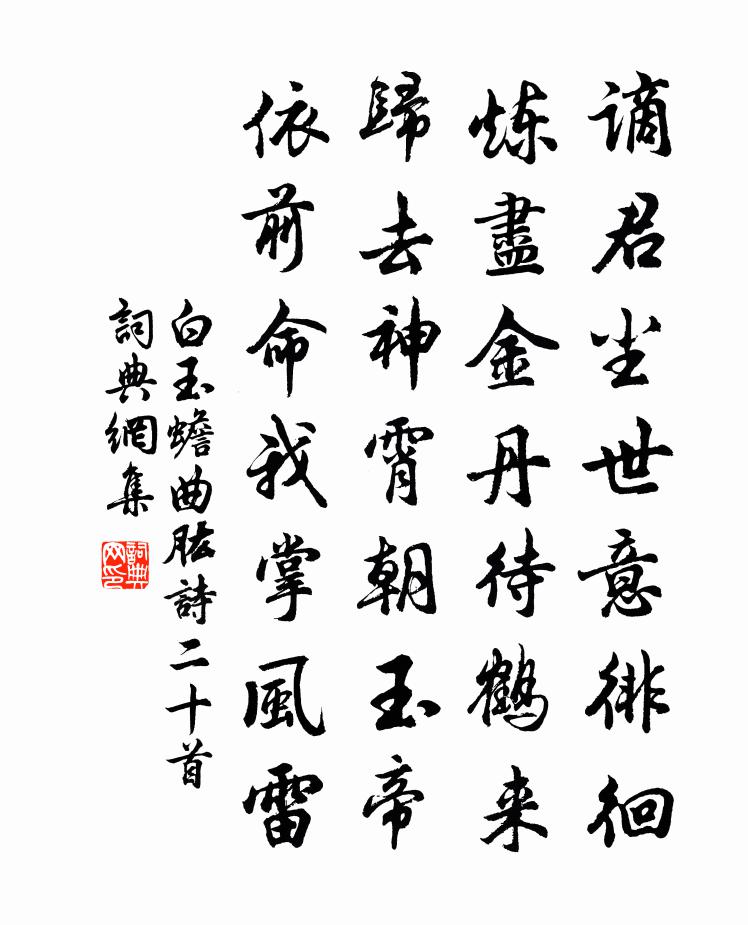 谪君尘世意徘徊
炼盡金丹待鹤来
歸去神霄朝玉帝
依前命我掌風雷
白玉蟾曲肱詩二十首
詞典網集
詞典网印